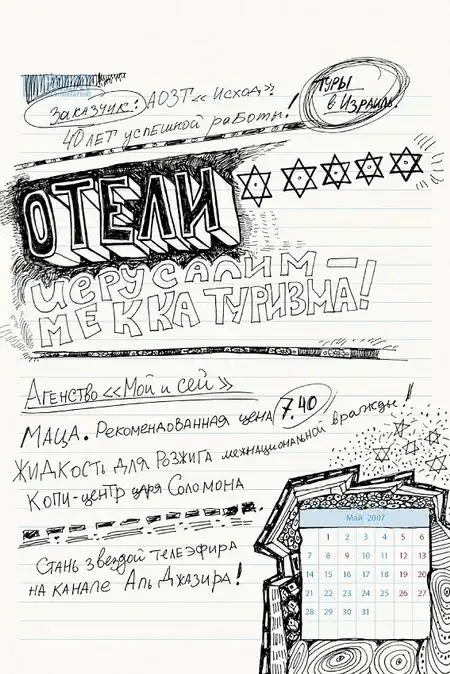 Заказчик: АОЗТ «Исход»
40 лет успешной работы!
Туры
в Израиль.
ОТЕЛИ
ИЕРУСАЛИМ –
МЕККА ТУРИЗМА!
Агенство «Мой и сей»
МАЦА. Рекомендованная цена 7.40
Жидкость для розжига межнациональной вражды!
Копи-центр царя Соломона
Стань звездой телеэфира
на канале Аль Джазира!
Май 2007
1 2 3 4 5 6
7 8 9 10 11 12 13
14 15 16 17 18 19 20
21 22 23 24 25 26 27
28 29 30 31